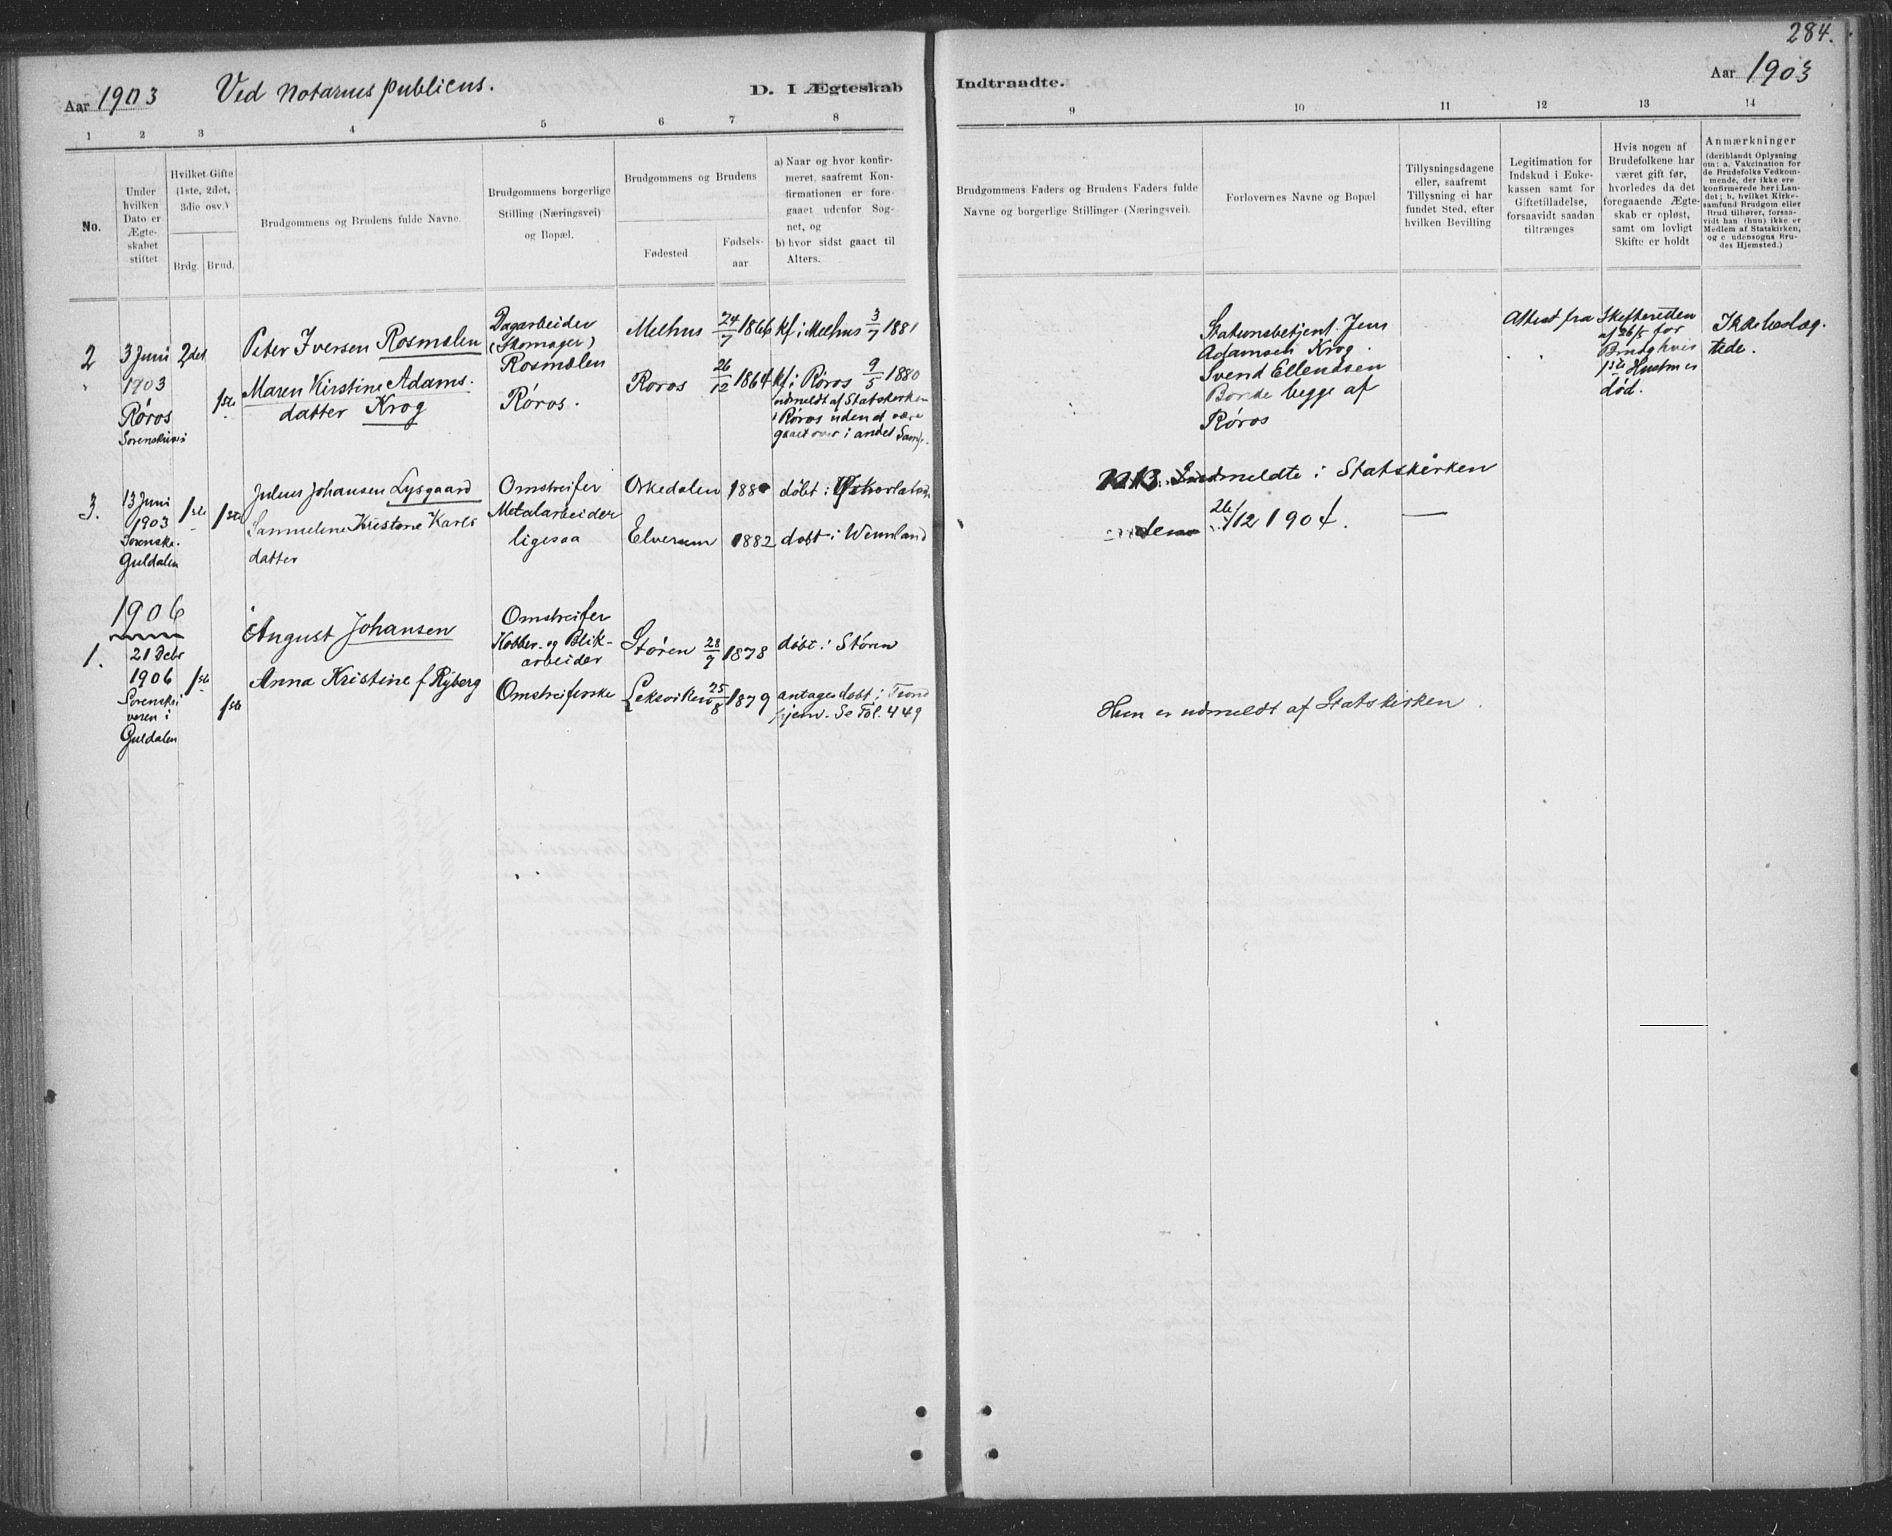 284.
Aar 1903 Ved Notarius publicus. D. I Ægteskab Indtraadte. Aar 1903
1 2 3 4 5 6 7 8 9 10 11 12 13 14
No.
Under hvilken Dato er Ægteskabet stiftet
Hvilket Gifte (1ste, 2det, 3die osv.)
Brdg. Brud.
Brudgommens og Brudens fulde Navne.
Brudgommens borgerlige Stilling (Næringsvei) og Bopæl.
Brudgommens og Brudens
Fødested
Fødsels-aar
a) Naar og hvor konfirmeret, saafremt Konfirmationen er foregaaet udenfor Sognet, og
b) hvor sidst gaaet til Alters.
Brudgommens Faders og Brudens Faders fulde Navne og borgerlige Stillinger (Næringsvei).
Forlovernes Navne og Bopæl
Tillysningsdagene eller, saafremt Tillysning ei har fundet Sted, efter hvilken Bevilling
Legitimation for Indskud i Enkekassen samt for Giftetilladelse, forsaavidt saadan tiltrænges
Hvis nogen af Brudefolkene har været gift før, hvorledes da det foregaaende Ægteskab er opløst, samt om lovligt Skifte er holdt
Anmærkninger
(deriblandt Oplysning om: a, Vakcination for de Brudefolks Vedkommende, der ikke ere konfirmerede her i Landet; b, hvilket Kirkesamfund Brudgom eller Brud tilhører, forsaavidt han (hun) ikke er Medlem af Statskirken, og c udensogns Brudes Hjemsted.)
2
3 Juni
1903
Røros
2det
1ste
Peter Iversen Rosmælen
Maren Kirstine Adams.
datter Krog
Dagarbeider
(Skomager)
Rosmælen
Røros.
Melhus 24/7 1866
Røros 26/12 1864
kf i Melhus 3/7 1881
kf. i Røros 9/5 1880
udmeldt af Statskirken
i Røros uden at være
gaaet over i andet Samf.
Stationsbetjent Jens
Adamsen Krog.
Svend Ellendsen
Borde begge af
Røros
Attest fra
Skifteretten
af 26/5 for
Brudg hvis
1ste Hustru er
død.
3.
13 Juni
1903
Sorensk.
Guldalen
1ste
1ste
Julius Johansen Lysgaard
Karls
datter
Omstreifer
Metalarbeider
ligesaa
Orkedalen 188
Elverum 1882
døbt i
døbt i Wermland
Indmeldte i Statskirken
26/12 1904.
1906
1.
21 Debr
1906
Sorenskri
veren i
Guldalen
1ste
1ste
August Johansen
Anna Kristine f Ryberg
Omstreifer
Kobber- og Blik-
arbeider
Omstreiferske
Støren 28/9 1878
Leksviken 25/8 1879
døbt i Støren
antages døbt i Trond
hjem. Se Fol. 449
Hun er udmeldt af Statskirken.